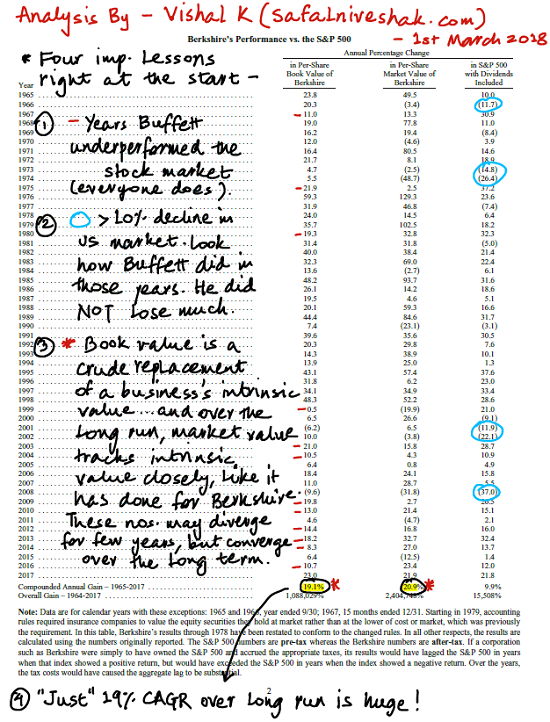 Analysis By - Vishal K (safalniveshak.com)
- 1st March 2018
Berkshire's Performance vs. the S&P 500
Annual Percentage Change
in Per-Share in Per-Share in S&P 500
Book Value of Market Value of with Dividends
Year Berkshire Berkshire Included
1965 23.8 49.5 10.0
1966 20.3 (3.4) (11.7)
1967 11.0 13.3 30.9
1968 19.0 77.8 11.0
1969 16.2 19.4 (8.4)
1970 12.0 (4.6) 3.9
1971 16.4 80.5 14.6
1972 21.7 8.1 18.9
1973 4.7 (2.5) (14.8)
1974 5.5 (48.7) (26.4)
1975 21.9 2.5 37.2
1976 59.3 129.3 23.6
1977 31.9 46.8 (7.4)
1978 24.0 14.5 6.4
1979 35.7 102.5 18.2
1980 19.3 32.8 32.3
1981 31.4 31.8 (5.0)
1982 40.0 38.4 21.4
1983 32.3 69.0 22.4
1984 13.6 (2.7) 6.1
1985 48.2 93.7 31.6
1986 26.1 14.2 18.6
1987 19.5 4.6 5.1
1988 20.1 59.3 16.6
1989 44.4 84.6 31.7
1990 7.4 (23.1) (3.1)
1991 39.6 35.6 30.5
1992 20.3 29.8 7.6
1993 14.3 38.9 10.1
1994 13.9 25.0 1.3
1995 43.1 57.4 37.6
1996 31.8 6.2 23.0
1997 34.1 34.9 33.4
1998 48.3 52.2 28.6
1999 0.5 (19.9) 21.0
2000 6.5 26.6 (9.1)
2001 (6.2) 6.5 (11.9)
2002 10.0 (3.8) (22.1)
2003 21.0 15.8 28.7
2004 10.5 4.3 10.9
2005 6.4 0.8 4.9
2006 18.4 24.1 15.8
2007 11.0 28.7 5.5
2008 (9.6) (31.8) (37.0)
2009 19.8 2.7 26.5
2010 13.0 21.4 15.1
2011 4.6 (4.7) 2.1
2012 14.4 16.8 16.0
2013 18.2 32.7 32.4
2014 8.3 27.0 13.7
2015 6.4 (12.5) 1.4
2016 10.7 23.4 12.0
2017 23.0 21.9 21.8
Compounded Annual Gain – 1965-2017 19.1% * 20.9% * 9.9%
Overall Gain – 1964-2017 15,508%
* Four imp. Lessons
right at the start -
1 - Years Buffett
underperformed the
stock market
(everyone does).
2 > 10% decline in
US market. Look
how Buffett did in
those years. He did
NOT lose much.
3 * Book value is a
crude replacement
of a business's intrinsic
value... and over the
long run, market value
tracks intrinsic
value closely, like it
has done for Berkshire.
These nos. may diverge
for few years, but converge
over the long term.
Note: Data are for calendar years with these exceptions: 1965 and 1966, year ended 9/30; 1967, 15 months ended 12/31. Starting in 1979, accounting
rules required insurance companies to value the equity securities they hold at market rather than at the lower of cost or market, which was previously
the requirement. In this table, Berkshire's results through 1978 have been restated to conform to the changed rules. In all other respects, the results are
calculated using the numbers originally reported. The S&P 500 numbers are pre-tax whereas the Berkshire numbers are after-tax. If a corporation
such as Berkshire were simply to have owned the S&P 500 and accrued the appropriate taxes, its results would have lagged the S&P 500 in years
when that index showed a positive return, but would have exceeded the S&P 500 in years when the index showed a negative return. Over the years,
the tax costs would have caused the aggregate lag to be substantial.
2
4 "Just" 19% CAGR over long run is huge!